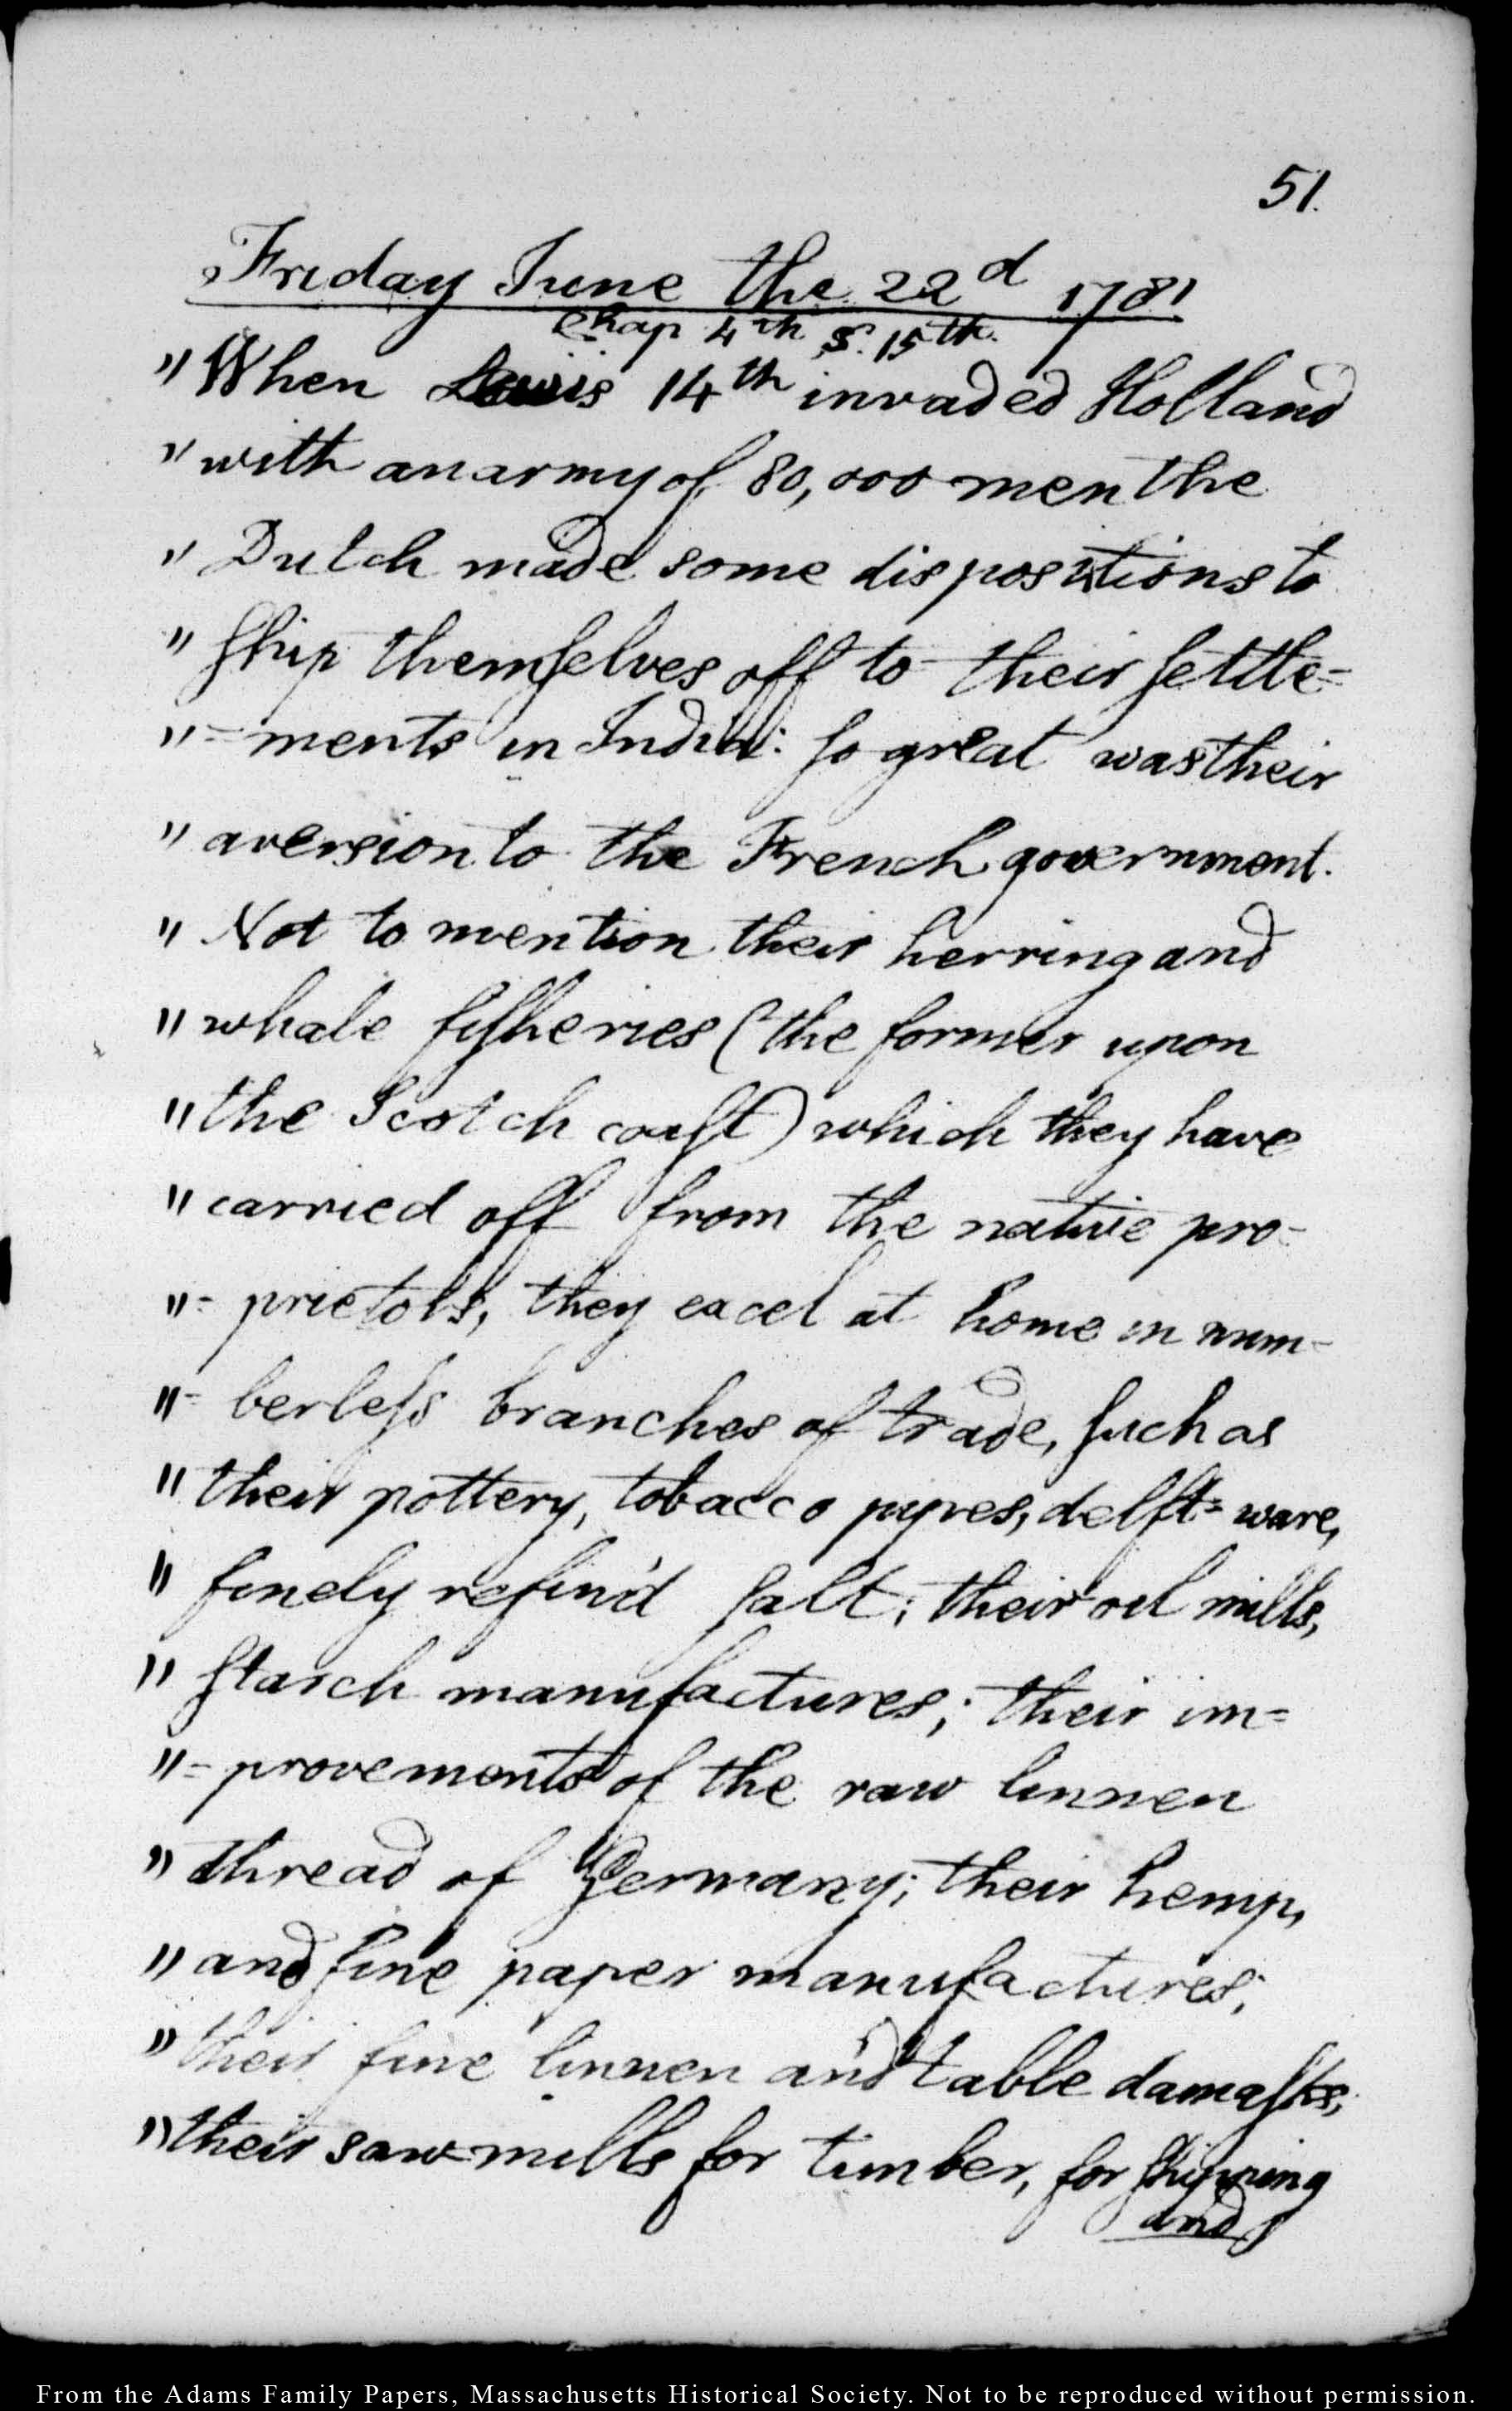 51.
Friday June the 22d 1781
Chap 4th S. 15th.
" When Lewis 14th invaded Holland
" with an army of 80,000 men the
" Dutch made some dispositions to
" ship themselves off to their settle=
" =ments in India: so great was their
" aversion to the French government.
" Not to mention their herring and
" whale fisheries (the former upon
" the Scotch coast) which they have
" carried off from the native pro-
" =prietors, they excel at home in num-
" =berless branches of trade, such as
" their pottery, tobacco pypes, delft=ware,
" finely refin'd salt; their oil mills,
" starch manufactures; their im=
" =provements of the raw linnen
" thread of Germany; their hemp,
" and fine paper manufactures;
" their fine linnen and table damasks;
" their saw-mills for timber, for shipping
and
From the Adams Family Papers, Massachusetts Historical Society. Not to be reproduced without permission.